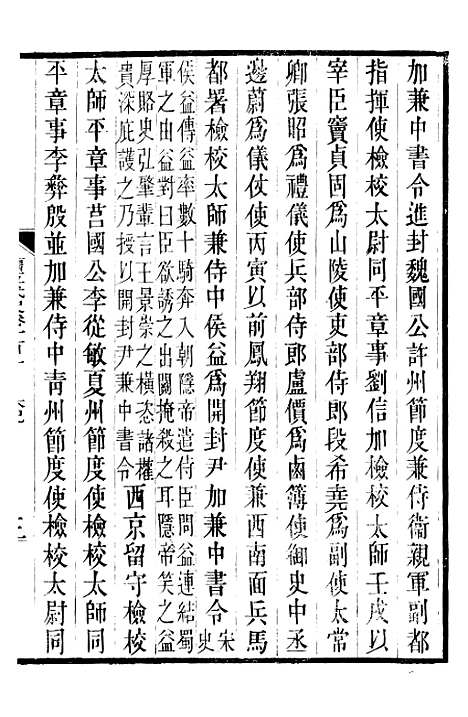 加兼中書令進封魏國公許州節度兼侍衞親軍副都
指揮使檢校太尉同平章事劉信加檢校太師壬戌以
宰臣竇貞固爲山陵使吏部侍郎段希堯爲副使太常
卿張昭爲禮儀使兵部侍郎盧價爲鹵簿使御史中丞
邊蔚爲儀仗使丙寅以前鳳翔節度使兼西南面兵馬
都署檢校太師兼侍中侯益爲開封尹加兼中書令宋史
侯益傳益率數十騎奔入朝隱帝遣侍臣問益連結蜀
軍之由益對曰臣欲誘之出關掩殺之耳隱帝笑之益
厚賂史弘肇輩言王景崇之橫恣諸權
貴深庇護之乃授以開封尹兼中書令西京留守檢校
太師平章事莒國公李從敏夏州節度使檢校太師同
平章事李彝殷並加兼侍中青州節度使檢校太尉同